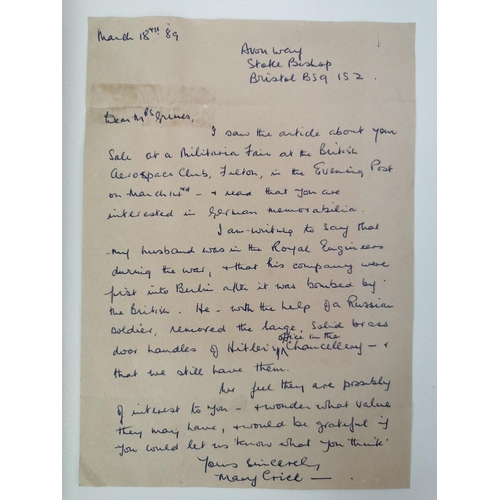 March 18th '89
Avon Way
Stoke Bishop
Bristol BS9 1S2.
Dear Mrs
I saw the article about your
Sale at a Militaria Fair at the British
Aerospace Club, Filton, in the Evening Post
on March 14th – & read that you are
interested in German memorabilia.
I am writing to say that
my husband was in the Royal Engineers
during the war, & that his company were
first into Berlin after it was bombed by
the British. He – with the help of a Russian
soldier, removed the large, solid brass
door handles of Hitler's office in the Chancellery – &
that we still have them.
We feel they are possibly
of interest to you – & wonder what value
they may have, & would be grateful if
you could let us know what you think.
Yours Sincerely,
Mary Crick –